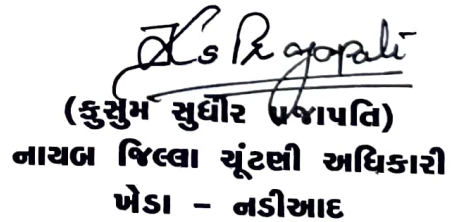 Ks Prajapati
(કુસુમ સુધીર પ્રજાપતિ)
નાયબ જિલ્લા ચૂંટણી અધિકારી
ખેડા - નડીઆદ